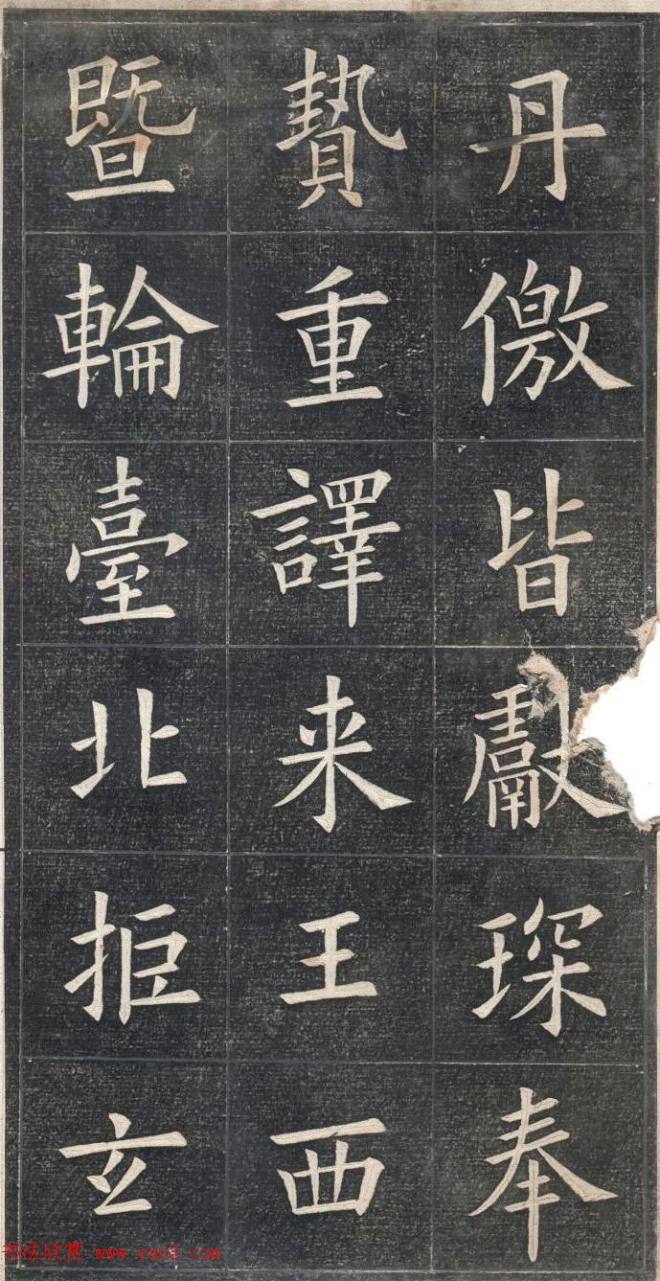 丹徼皆獻琛奉
贄重譯来王西
暨輪臺北拒玄
书法欣赏